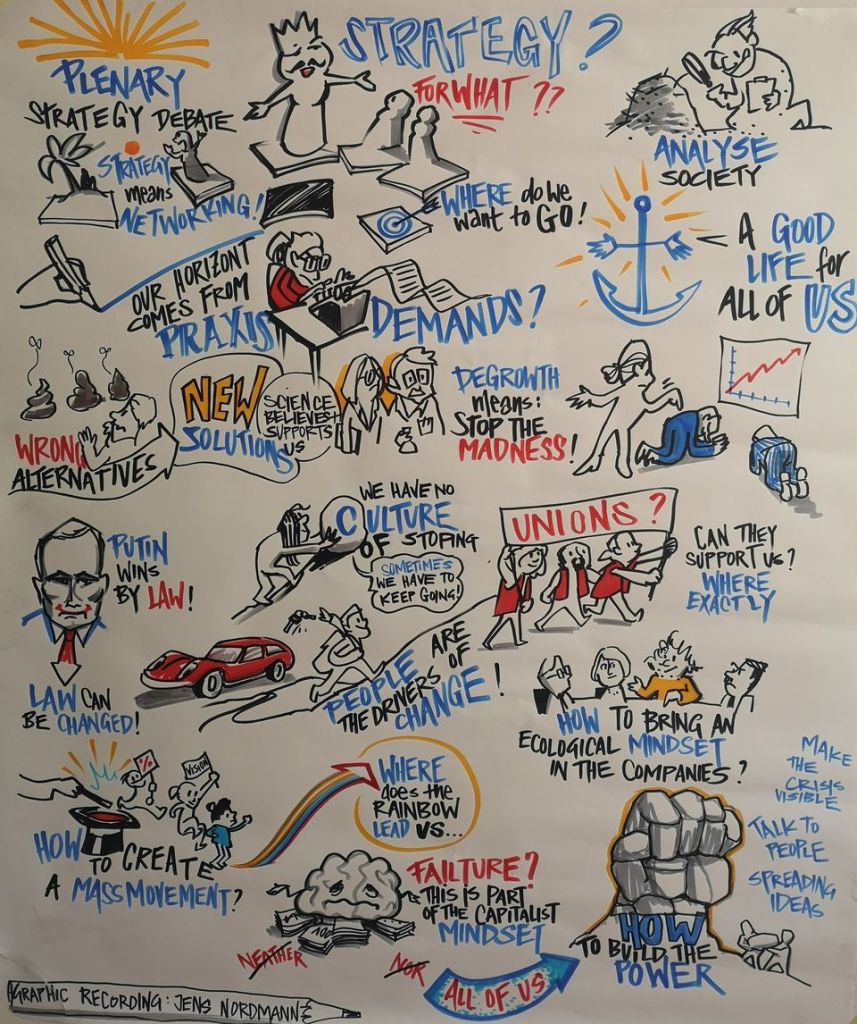 PLENARY
STRATEGY DEBATE
STRATEGY?
FOR WHAT ??
ANALYSE
SOCIETY
STRATEGY
means
NETWORKING!
WHERE do we
want to GO!
A GOOD
LIFE for
ALL OF US
OUR HORIZONT
COMES FROM
PRAXIS
DEMANDS?
WRONG
ALTERNATIVES
NEW
SOLUTIONS
SCIENCE
BELIEVES
SUPPORTS
US
DEGROWTH
means:
STOP THE
MADNESS!
PUTIN
WINS
BY LAW!
LAW CAN
BE CHANGED!
WE HAVE NO
CULTURE
OF STOPING
SOMETIMES
WE HAVE TO
KEEP GOING!
UNIONS?
CAN THEY
SUPPORT US?
WHERE
EXACTLY
PEOPLE ARE
THE DRIVERS OF
CHANGE!
HOW TO BRING AN
ECOLOGICAL MINDSET
IN THE COMPANIES?
%
VISION
HOW
TO CREATE
A MASSMOVEMENT?
WHERE
does the
RAINBOW
LEAD US...
FAILTURE?
THIS IS PART
OF THE CAPITALIST
MINDSET
100
NEATHER
NOR
ALL OF US
MAKE
THE
CRISIS
VISIBLE
TALK TO
PEOPLE
SPREADING
IDEAS
HOW
TO BUILD THE
POWER
GRAPHIC RECORDING: JENS NORDMANN